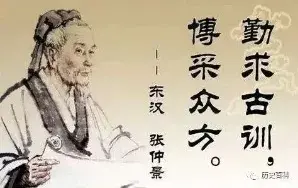 勤求古训，
博采众方。
——东汉 张仲景
历史百科